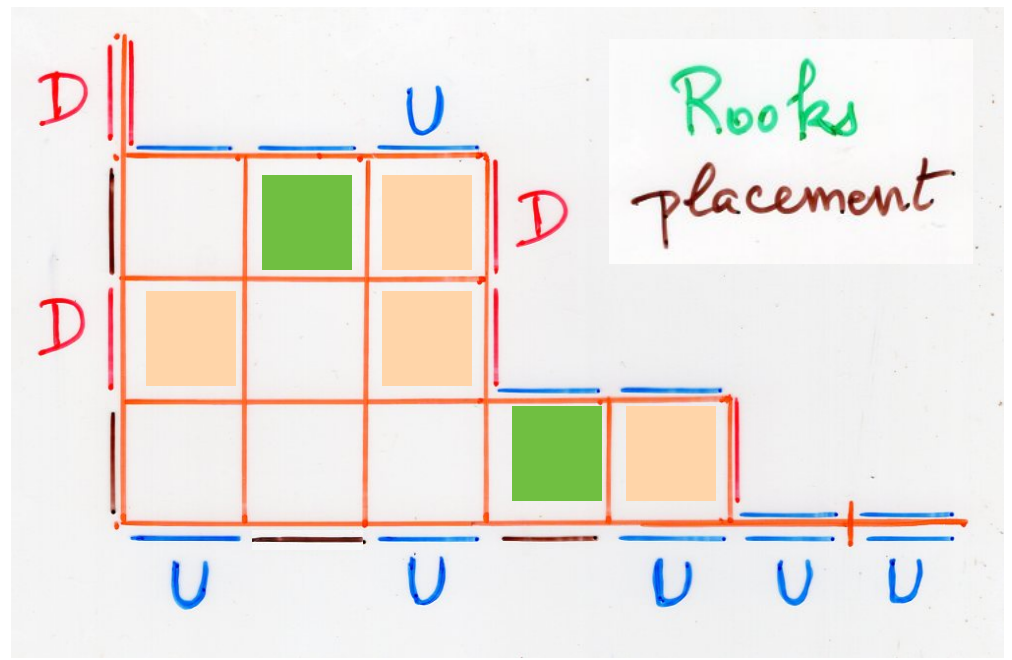 D
U
Rooks
placement
D
D
U U U U U